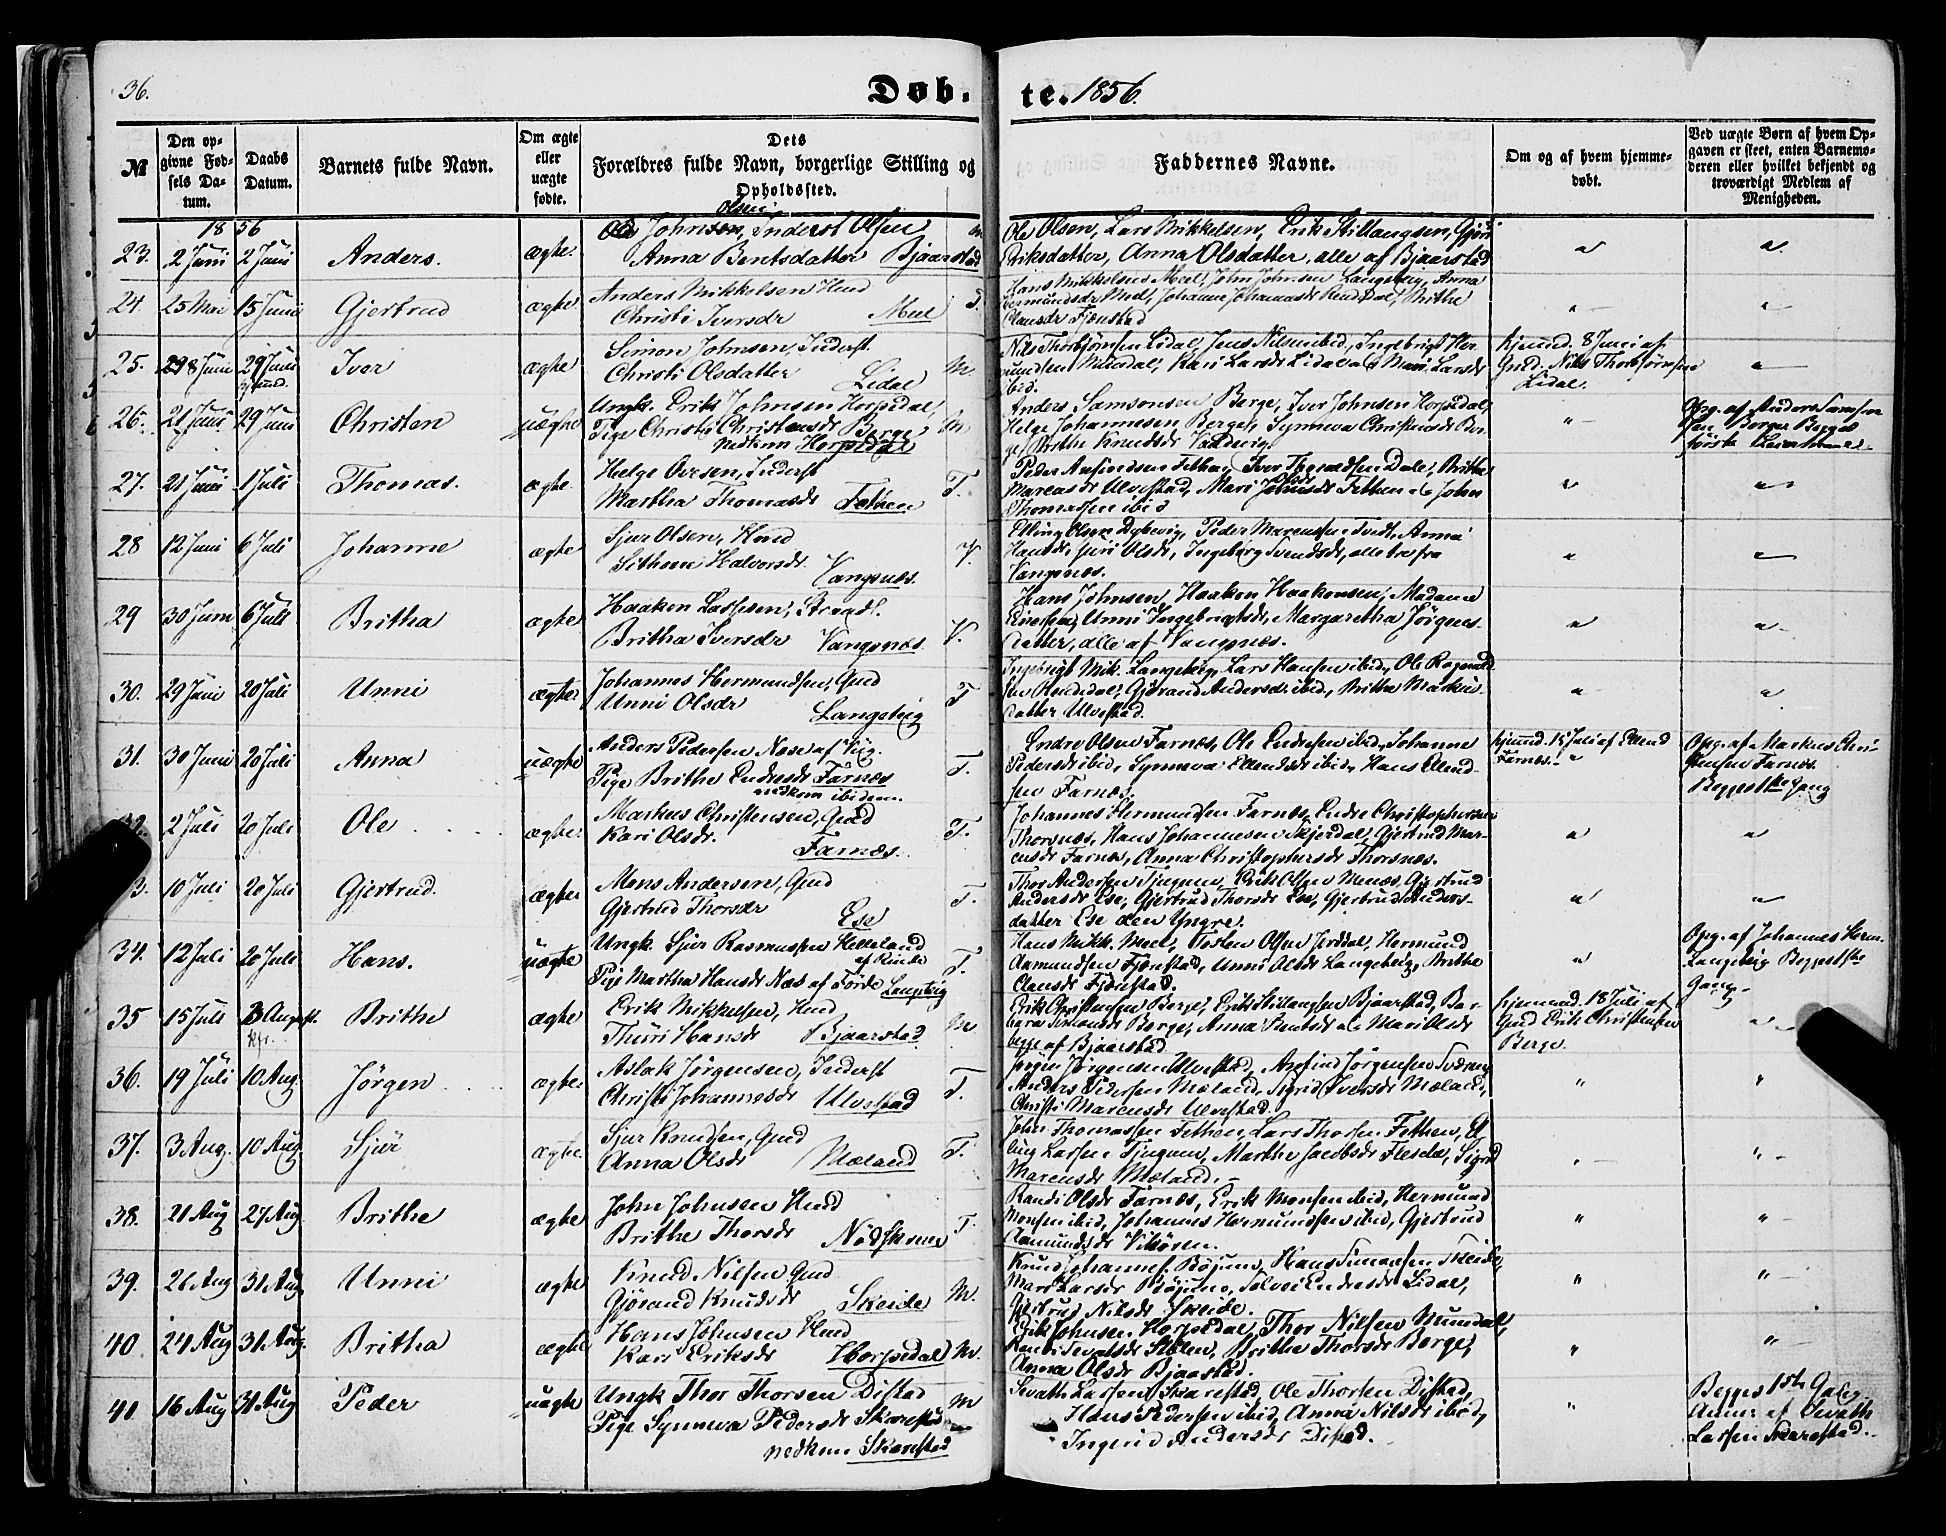 36.
Døb-
te. 1856.
№
Den op-
givne Fød-
sels Da-
tum.
Daabs
Datum.
Barnets fulde Navn.
Om ægte
eller
uægte
fødte.
Dets
Forældres fulde Navn, borgerlige Stilling og
Opholdssted.
Faddernes Navne.
Om og af hvem hjemme-
døbt.
Ved uægte Børn af hvem Op-
gaven er skeet, enten Barnemo-
deren eller hvilket bekjendt og
troværdigt Medlem af
Menigheden.
1856
23. 2 Juni 2 Juni Anders. ægte.
Olsen
Ole Johnsen, Inderst
Anna Bentsdatter Bjaarstad
Ole Olsen, Lars Mikkelsen, Erik Stillaugsen,
Eriksdatter, Anna Olsdatter, alle af Bjaarstad
24. 25 Mai 15 Juni Gjertrud ægte
Anders Mikkelsen Hmd
Christi Iversdr Meel T.
Hans Mikkelsen Meel, John Johnsen Langebeig, Anna
Hermundsdr Meel, Johanne Johannesdr Rendedal, Brithe
Clausdr Fjærestad
25. 8 Juni 29 Juni Iver ægte M.
Simon Johnsen, Inderst
Christi Olsdatter Lidal
Nils Thorbjørnsen Lidal, Jens Nilsen ibid, Ingebrigt Her-
mundsen Mundal, Kari Larsdr Lidal og Mari Larsdr
ibid.
hjemmd. 8 Juni af
Gmd. Nils Thorbjørnsen
Lidal.
26. 21 Juni 29 Juni Christen uægte M
Ungk. Erik Johnsen Horpedal,
Pige Christi Christensdr Berge,
nedkom Horpedal
Anders Samsonsen Berge, Iver Johnsen Horpedal,
Helge Johannesen Berge, Synneva Christensdr Ber-
ge, Brithe Knudsdr
Opg. af Anders Samson-
sen Berge Begges
første Leiermaal
27. 21 Juni 1 Juli Thomas. ægte T.
Helge Oversen, Inderst
Martha Thomasdr Fethen
Peder Ansindsen Fethen, Iver Dale, Brithe
Marcusdr Ulvestad, Mari Johnsdr Fethen og John
Thomassen ibid
28 12 Juni 6 Juli Johanne ægte V.
Sjur Olsen, Hmd
Halvorsdr. Vangsnæs.
Elling Olsen Dybevig, Peder Marcussen Tvedt, Anna
Hansdr, Olsdr, Ingeborg Svendsdr, alle tre fra
Vangsnæs.
29 30 Juni 6 Juli Britha ægte V.
Haaken Lassesen, Strands.
Britha Iversdr Vangsnæs.
Hans Johnsen, Haaken Haakensen, Madame
Unni Ingebrigtsdr, Margaretha Jørgens-
datter, alle af Vangsnæs.
30. 29 Juni 20 Juli Unni ægte. T
Johannes Hermundsen, Gmd
Unni Olsdr Langebeig
Ingebrigt Mik. Langebeig, Lars Hansen ibid, Ole Ragnvald-
sen Rendedal, Gjørand Andersdr ibid, Britha Markus-
datter Ulvestad.
31. 30 Juni 20 Juli Anna uægte T.
Anders Pedersen Nese af Vig.
Pige Brithe Endresdr Farnæs
nedkom ibidem.
Endre Olsen Farnæs, Ole Endresen ibid, Johanne
Pedersdr ibid, Synneva Ellendsdr ibid, Hans Ellend-
sen Farnæs.
hjemmd. 15 Juli af Ellend
Farnæs.
Opg. af Markus Chri-
stensen Farnæs.
Begges 1ste Gang
2 Juli 20 Juli Ole ægte. T.
Markus Christensen, Gmd
Kari Olsdr. Farnæs.
Johannes Hermundsen Farnæs, Endre Christophersen
Thorsnæs, Hans Johannesen Skjerdal, Gjertrud Mar-
cusdr Farnæs, Anna Christophersdr Thorsnæs.
3. 10 Juli 20 Juli Gjertrud. ægte T.
Mons Andersen, Gmd
Gjertrud Thorsdr Ese
Thor Andersen Tjugum, Erik Olsen Menæs, Gjertrud
Andersdr Ese, Gjertrud Thorsdr Ese, Gjertrud Anders-
datter Ese den Yngre.
34. 12 Juli 20 Juli Hans. uægte T.
Ungk. Sjur Rasmussen Helleland
af Rinde
Pige Martha Hansdr Næs af Førde Langebeig
Hans Mikk. Meel, Tosten Olsen Jerddal, Hermund
Aamundsen Fjærestad, Unni Olsdr Langebeig, Brithe
Clausdr Fjærestad.
Opg. af Johannes Herm.
Langebeig Begges 1ste
Gang.
35 15 Juli 3 August. Brithe ægte M.
Erik Mikkelsen, Hmd
Thuri Hansdr Bjaarstad
Erik Christensen Berge, Erik Stillaugsen Bjaarstad, Bar-
bgra Simonsdr Berge, Anna Bentsdr og Mari Olsdr
begge af Bjaarstad
hjemmed. 18 Juli af
Gmd Erik Christensen
Berge.
36. 19 Juli 10 Aug. Jørgen ægte. T.
Aslak Jørgensen, Inderst
Christi Johannesdr Ulvestad
Jørgen Jørgensen Ulvestad, Ansind Jørgensen Sværen,
Anders Pedersen Mæland, Sigrid Iversdr Mæland,
Christi Marcusdr Ulvestad.
37. 3 Aug. 10 Aug Sjur ægte. T.
Sjur Knudsen, Gmd
Anna Olsdr Mæland
John Thomassen Fethen, Lars Thorsen Fethen, El-
ling Larsen Tjugum, Marthe Jacobsdr Flesde, Sigrid
Marcusdr Mæland.
38. 21 Aug 24 Aug Brithe ægte T.
John Johnsen Hmd
Brithe Thorsdr
Randi Olsdr Farnæs, Erik Monsen ibid, Hermund
Monsen ibid, Johannes Hermundsen ibid, Gjertrud
Aamundsdr
39. 26 Aug 31 Aug Unni ægte M.
Knud Nilsen Gmd
Gjørand Knudsdr Skeide
Knud Johannes. Bøjum, Hans Simonsen Skeide,
Mari Larsdr Bøjum, Sølvei Endresdr Lidal,
Gjertrud Nilsdr Skeide.
40. 24 Aug 31 Aug. Britha ægte M.
Hans Johnsen Hmd
Kari Eriksdr Horpedal
Erik Johnsen Horpedal, Thor Nilsen Mundal,
Randi Sevatsdr Stølen, Brithe Thorsdr Berge,
Anna Olsdr Bjaarstad.
41 16 Aug 31 Aug Peder uægte M
Ungk Thor Thorsen Distad
Pige Synneva Pedersdr Skarestad
nedkom Skarestad
Sevath Larsen Skarestad, Ole Thorsen Distad,
Hans Pedersen ibid, Anna Nilsdr ibid,
Ingerid Andersdr Distad.
Begges 1ste Gang
Anm. af Sevath
Larsen Skarestad.